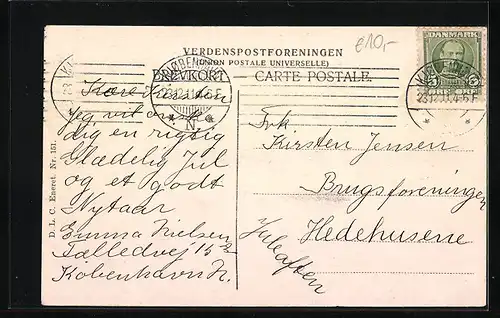 €10,-
VERDENSPOSTFORENINGEN
(UNION POSTALE UNIVERSELLE)
BREVKORT CARTE POSTALE.
DANMARK
KJØBENHAVN
23.12.11.4-6 E
N.
Kære Kirsten
Jeg vil ønske
dig en rigtig
Glædelig Jul
og et godt
Nytaar
Emma Nielsen
Fælledvej 15
København N.
Frk
Kirsten Jensen
Brugsforeningen
Hedehusene
Juleaften
D. L. C. Eneret. Nr. 151.